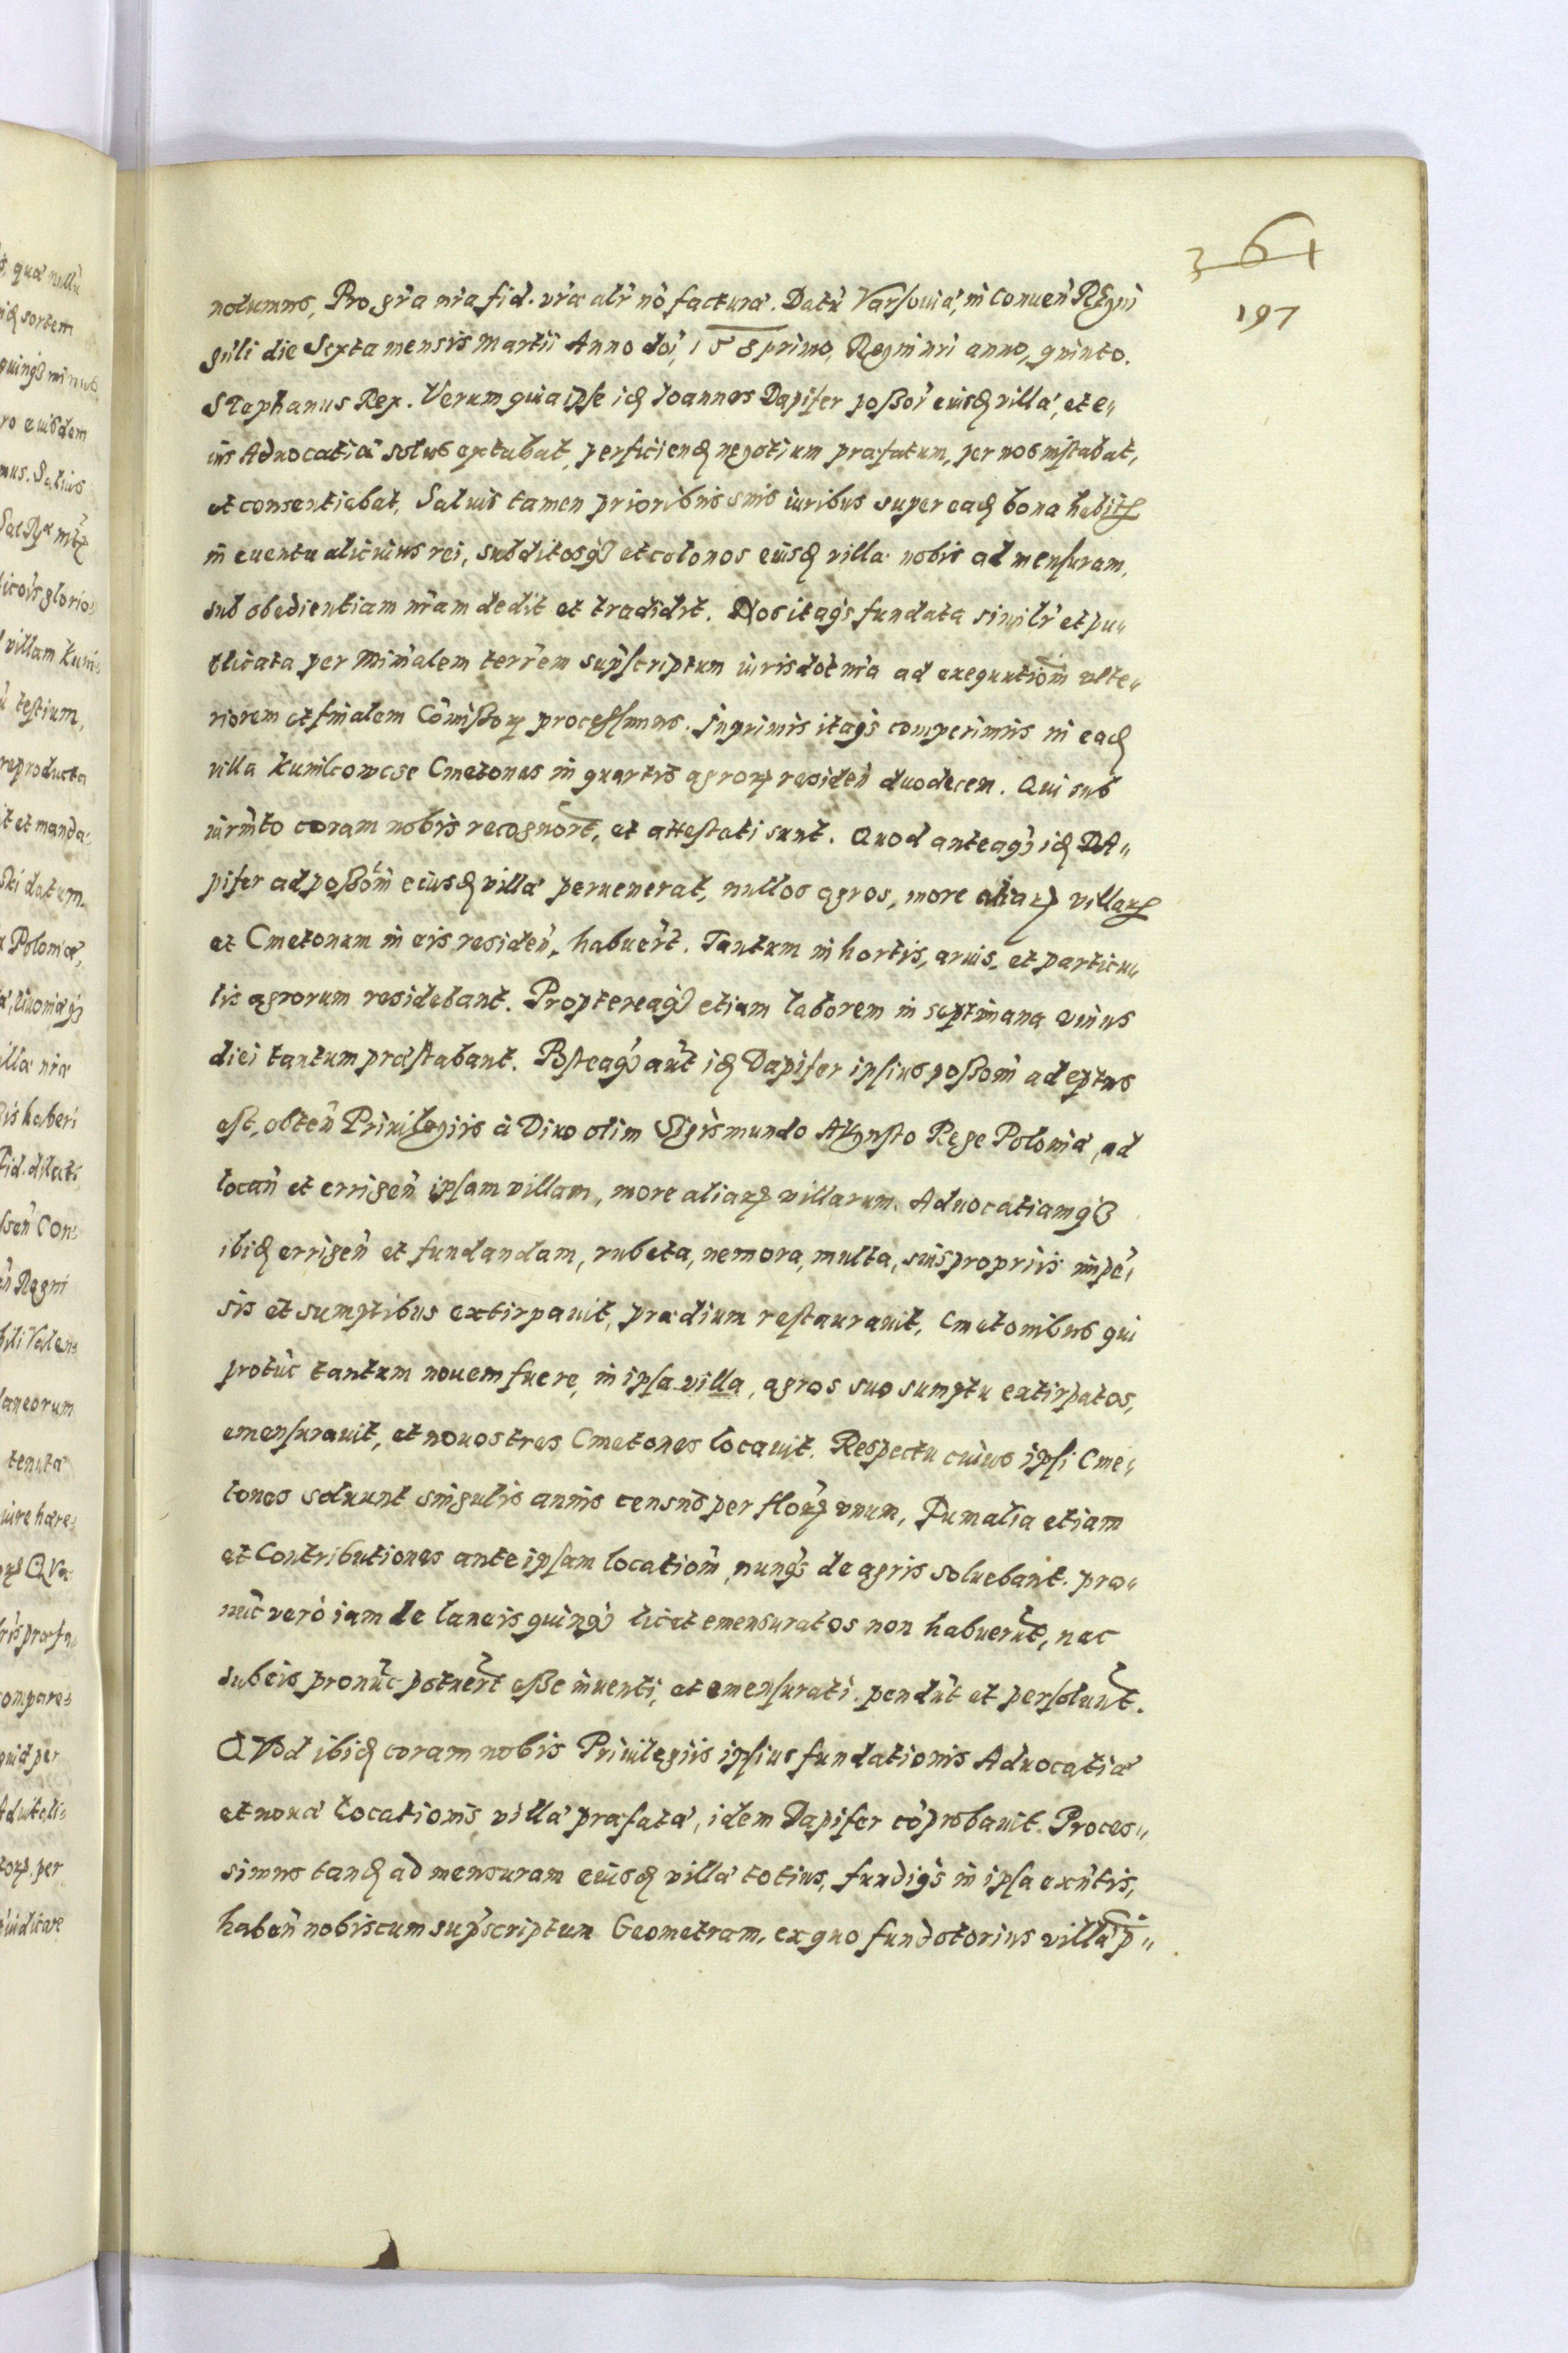 361
197
nolumus, Pro gr̃a nr̃a fid. vr̃a alr̃ nõ factura. Datũ Varsouiæ, in Conuen̄ Regni
gn̄li die Sexta mensis Martii Anno dõi, 158 primo, Regni nr̄i anno, quinto.
Stephanus Rex. Verum quia ipse idꝫ Ioannes Dapifer poßor̃ eiusdꝫ villæ, et e„
ius Aduocatiæ solus extabat, perficiendꝫ negotium præfatum, per nos instabat,
et consentiebat, Saluis tamen prioribus suis iuribus super eadꝫ bona habitꝫ
in euentu alicuius rei, subditosqꝫ et colonos eiusdꝫ villæ nobis ad mensuram,
sub obedientiam nr̃am dedit et tradidit. Nos itaqꝫ fundata similr̃ et pu„
blicata per Min̄alem terr̃em supr̃scriptum iurisdõt nr̃a ad exequutiom̃ vlte„
riorem et finalem Com̃ißorꝫ processimus. Inprimis itaqꝫ comperimus in eadꝫ
villa Kunikowcse Cmetones in quartis agrorꝫ residen̄ duodecem. Qui sub
iurm̃to coram nobis recognort̃, et attestati sunt. Quod anteaqꝫ idꝫ Da„
pifer ad poßom̃ eiusdꝫ villæ peruenerat, nullos agros, more aliarꝫ villarꝫ
et Cmetonum in eis residen̄, habuer̃t. Tantum in hortis, aruis, et particu„
lis agrorum residebant. Proptereaqꝫ etiam laborem in septimana vnius
diei tantum præstabant. Posteaqꝫ aut̃ idꝫ Dapifer ipsius poßom̃ adeptus
est, obten̄ Priuilegiis à Diuo olim Sigismundo Augusto Rege Poloniæ, ad
locan̄ et errigen̄ ipsam villam, more aliarꝫ villarum. Aduocatiamqꝫ
ibidꝫ errigen̄ et fundandam, rubeta, nemora, multa, suis propriis impẽ„
sis et sumptibus extirpauit, prædium restaurauit, Cmetonibus qui
protũc tantum nouem fuere, in ipsa villa, agros suo sumptu extirpatos,
emensurauit, et nouos tres Cmetones locauit. Respectu cuius ipsi Cme„
tones soluunt singulis annis censũs per flor̃ꝫ vnum, Fumalia etiam
et Contributiones ante ipsam locatiom̃, nunqꝫ de agris soluebant. pro„
nũc verò iam de laneis quinqꝫ licet emensuratos non habuerũt, nec
sub eis pronũc potuer̃t eße inuenti, et emensurati. pendũt et persolunt̃.
QVod ibidꝫ coram nobis Priuilegiis ipsius fundationis Aduocatiæ
et nouæ locationis villæ præfatæ, idem Dapifer cõprobauit. Proces„
simus tandꝫ ad mensuram eiusdꝫ villæ totius, fundiqꝫ in ipsa exñtis,
haben̄ nobiscum supr̃scriptum Geometram, ex quo fundo totius villæ p̃„